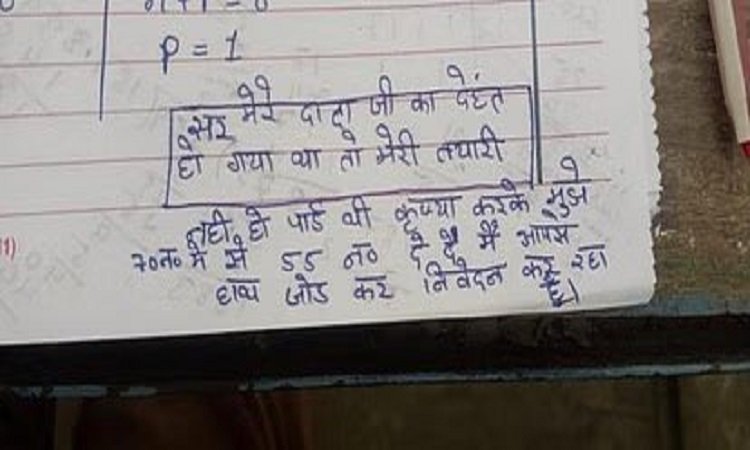 P = 1
सर मेरे दादा जी का देहंत
हो गया था तो मेरी तयारी
नही हो पाई थी कृप्या करके मुझे
70 न० में से 55 न० दे दे मैं आपसे
हाथ जोड कर निवेदन कर रहा
हूँ।
1)